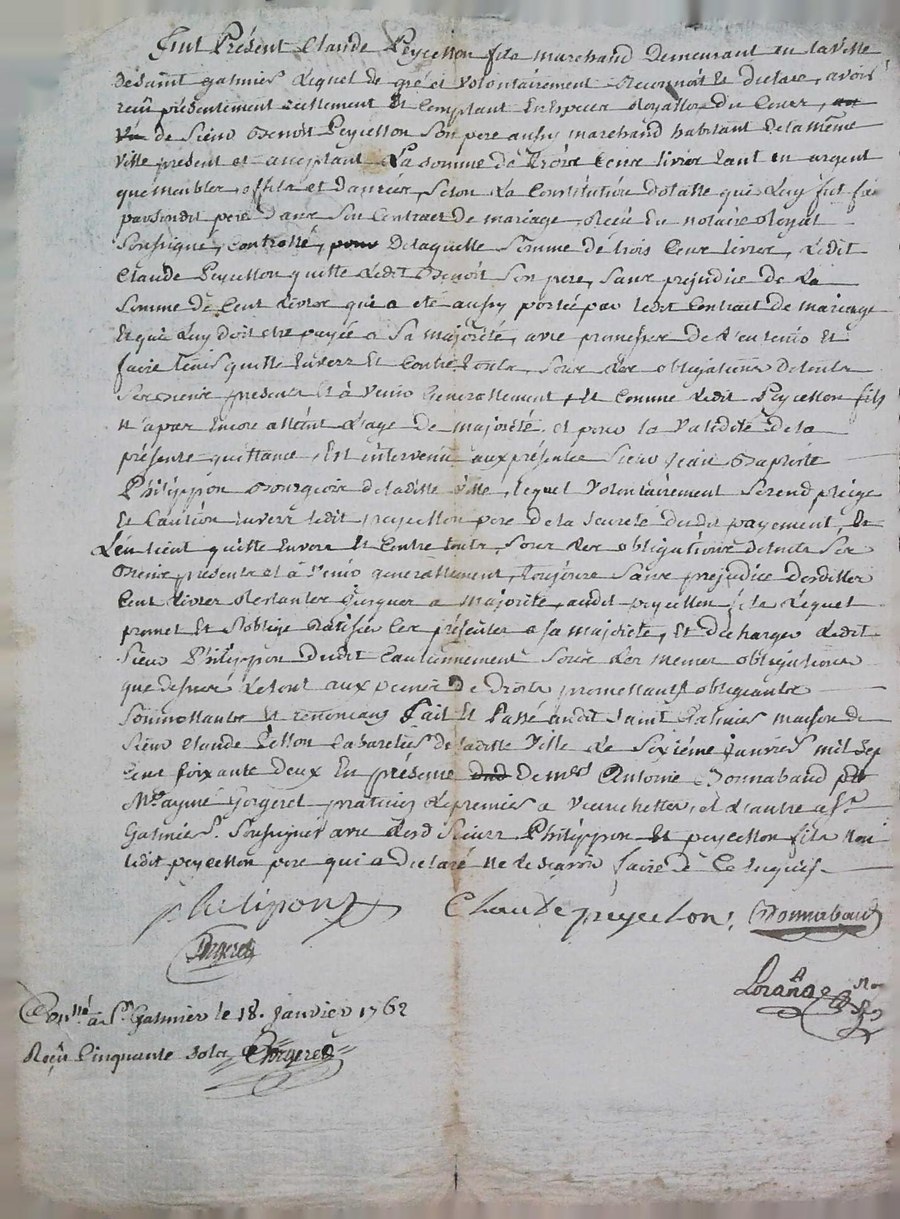 Fut Présent Claude Peyccllon fils marchand Demeurant en la ville
de Saint galmier Lequel de gré et volontairement Reconnoit et declare, avoir
reçu presentement reellement Et Comptant En Especes Royalles du Cours,
de Sieur Benoit Peycellon Son pere aussy marchand habitant de la même
ville present et acceptant La somme de Trois Cens livres tant en argent
que meubles, effets et danrées, Selon La Constitution dotalle qui Luy fut
par son dit pere Dans Son Contract de mariage, Reçu Du notaire Royal
Soussigné, Controllé, De laquelle Somme de trois Cens livres, Ledit
Claude Peycellon quitte Ledit Benoit Son pere, Sans prejudice De La
Somme de Cent Livres qui a eté aussy portée par ledit Contrait de mariage
Et qui Luy doit etre payée a Sa majorité, avec promesse De L'en tenir Et
faire tenir quitte Envers Et Contre touts, Sous Les obligations de touts
Ses Biens presents Et à Venir Generallement, Et Comme Ledit Peycellon fils
N'a pas Encore atteint L'age De majorité, et pour la Validité de la
présente quittance, Est intervenu aux présentes Sieur Jean Baptiste
Philippon Bourgeois de laditte ville, lequel Volontairement Se rend pleige
Et Caution Envers ledit peycellon pere de la Seureté dudit payement, De
L'en tient quitte Envers Et Contre touts, Sous Les obligations de touts Ses
Biens, presents et à Venir generallement, toujours Sans prejudice desdittes
Cent Livres Restantes Jusques a majorité, audit peycellon fils Lequel
promet Et S'oblige Ratifier Ces présentes a sa majorité, Et decharger Ledit
Sieur Philippon Dudit Cautionnement Sous Les memes obligations
que dessus, Le tout aux peines De Droits, promettants obligeants
Soumettants Et renonçans Fait Et Passé audit Saint Galmier maison de
Sieur Claude Cabaretier de laditte Ville Le Sixiéme Janvier mil Sep
Cent soixante deux En présence De mes Antoine Bonnabaud
Me aymé Gorgeret praticien Le premier a et L'autre a St
Galmier. Soussignés avec Lesd Sieurs Philippon Et peycellon fils Non
ledit peycellon pere qui a Declaré Ne le Scavoir faire De Ce Requis.
philipon Claude peycelon, Bonnabaud
Gorgeret
Conllé à St Galmier le 18. janvier 1762
Reçu Cinquante sols Gorgeret